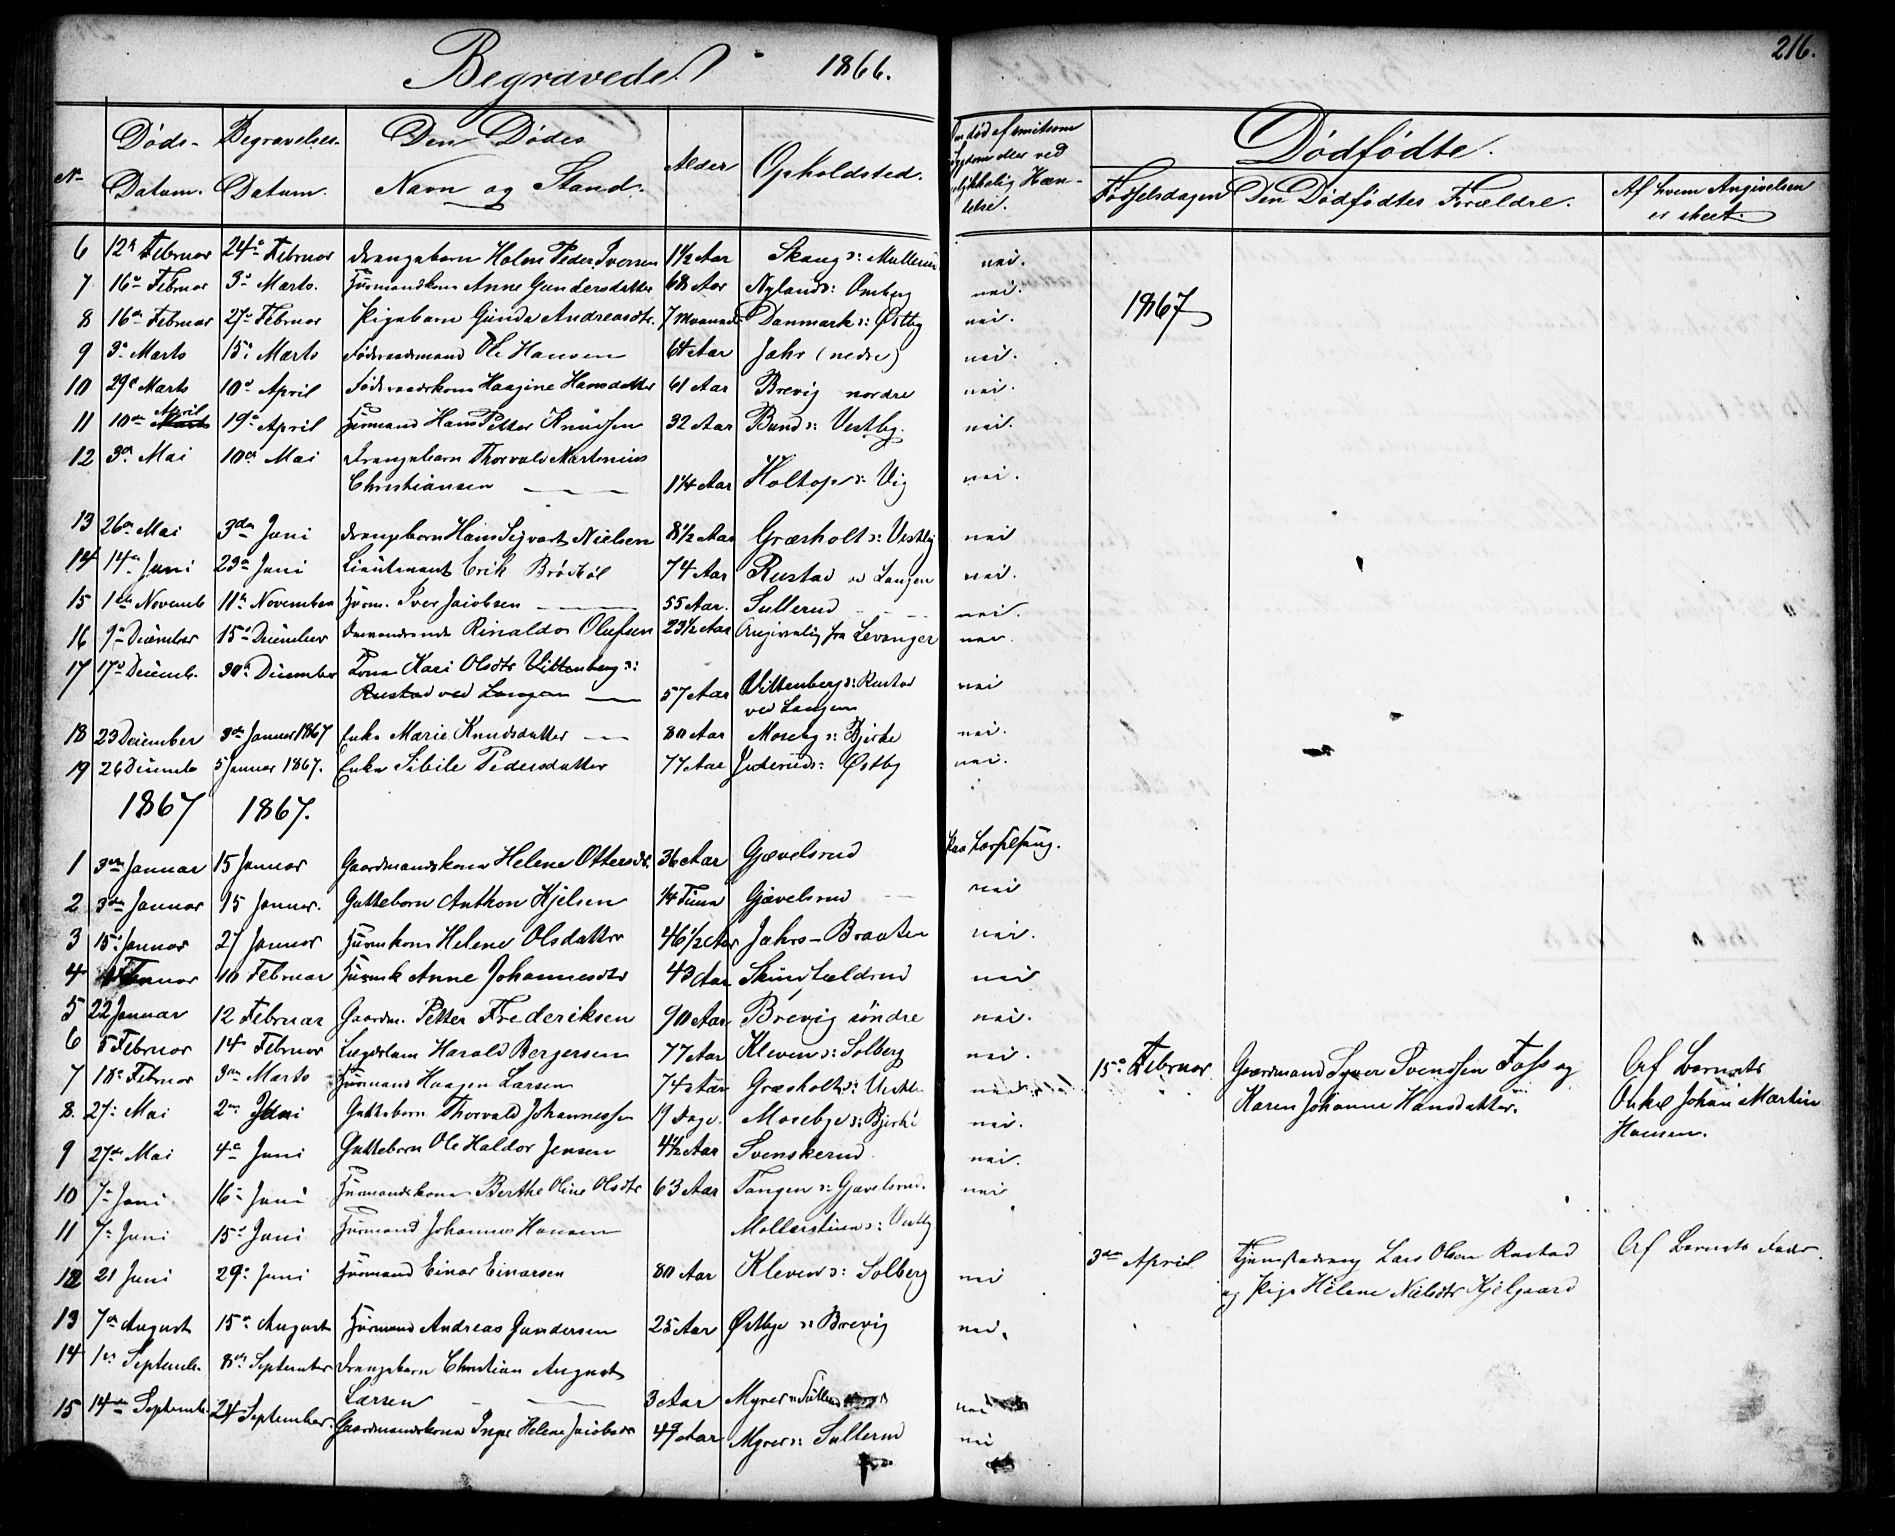 Begravede. 1866.
216.
No
Døds-Datum.
Begravelses-Datum.
Den Dødes Navn og Stand.
Alder
Opholdsted.
død af smitsom
eller ved
ulykkelig Hæn-
delse.
Dødfødte.
Fødselsdagen
Den Dødfødtes Forældre.
Af hvem Angivelsen
er skeet.
6 12te Februar 24de Februar Drengebarn Peder Iversen 1 1/2 Aar Skaug s: nei.
7 16de Februar 3de Marts. Huusmandskone Anne Gundersdatter 68 Aar Nyland s: Omberg nei.
8 16de Februar 27de Februar Pigebarn Gunda Andreasdtr. 7 Maaneder Danmark s: Østby nei.
9 3de Marts 15de Marts Føderaadsmand Ole Hansen 64 Aar Jahr (nedre) nei.
10 29de Marts 10de April Føderaadskone Haagine Hansdatter 61 Aar Brevig nordre nei.
11 10de April 19de April Huusmand Hans Petter Knudsen 32 Aar Bund s: Vestby. nei.
12 3de Mai 10de Mai Drengebarn Thorvald Martenius
Christiansen 1 1/4 Aar Holtop s: Vig nei.
13 26de Mai 3die Juni Drengebarn Hans Sigvart Nielsen 8 1/2 Aar Græsholt s: Vestby nei
14 14de Juni 23de Juni Lieutenant Erik 74 Aar Rustad ved Langen nei.
15 1ste Novemb 11te November Huusm. Iver Jacobsen 55 Aar. Sullerud nei.
16 9de December 15de December Rinaldo Olufsen 23 1/2 Aar Angivelig fra Levanger nei.
17 17de Decemb. 30te December Kone Kari Olsdtr Vittenberg s:
Rustad ved Langen 57 Aar Vittenberg s: Rustad
ved Langen nei
18 23 December 3die Januar 1867 Enke Marie Knudsdatter 80 Aar Moseby s: Bjerke nei.
19 26 Decemb 5 Januar 1867. Enke Sibile Pedersdatter 77 Aar s: Østby nei.
1867 1867.
1867
1 3die Januar 15 Januar Gaardmandskone Helene Ottersdtr. 36 Aar Gjævelsrud Paa Barselseng.
2 3die Januar 15 Januar. Gutteborn Anthon Kjelsen 1/4 Time Gjævelsrud nei
3 15de Januar 27 Januar Huusmkone Helene Olsdatter 46 1/2 Aar Jahrs-Braaten nei.
4 10 Februar Huusmk Anne Johannesdtr 43 Aar Skindfældrud nei
5 22 Januar 12 Februar Gaardm. Petter Frederiksen 90 Aar Brevig søndre nei.
6 5 Februar 14 Februar Lægdslem Harald Bergersen 77 Aar Kleven s: Solberg nei.
7 18de Februar 3die Marts Huusmand Haagen Larsen Græsholt s: Vestb. nei.
8. 27de Mai 2den Juni Gutteborn Thorvald Johannessen 19 Dage. Mosebye s: Bjerke nei.
9 27de Mai 4de Juni Gutteborn Ole Haldor Jensen 4 1/2 Aar Svenskerud. nei.
10 7de Juni 16de Juni Huusmandskone Berthe Oline Olsdtr 63 Aar Tangen s: Gjævelsrud. nei
11 7de Juni 15de Juni Huusmand Johannes Hansen Mollerstuen s: Vestby
12 21 Juni 29de Juni Huusmand Einar Einarsen 80 Aar Kleven s: Solberg nei
13 7de August 15de August Huusmand Andreas Gundersen 25 Aar Østbye s: Brevig nei.
14 1ste Septemb. 8de September Drengebarn Christian August
Larsen 3 Aar Myrer s: Sullerud nei
15 14de Septemb. 24 September. Gaardmandskone Inge Helene Jacobsdtr 49 Aar Myrer s: Sullerud nei
15de Februar Gaardmand Syver Svendsen Foss og
Karen Johanne Hansdatter.
Af Barnets
Onkel Johan Martin
Hansen.
3die April Tjenestedreng Lars Olsen Rustad
og Pige Helene Nielsdtr Kjelgaard
Af Barnets Fader.